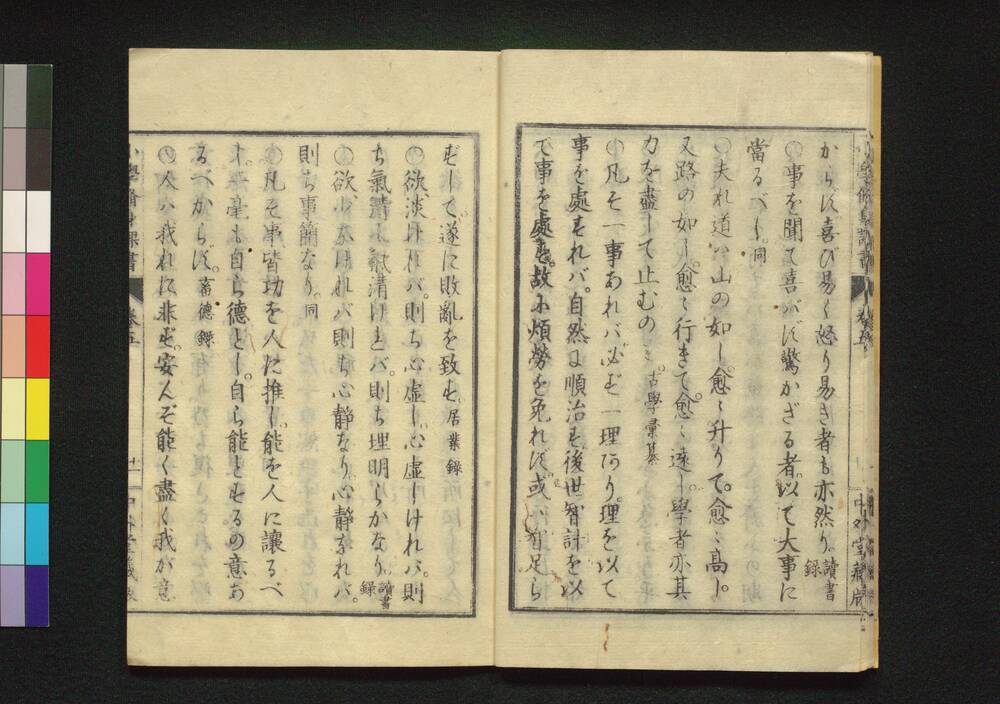 からず喜び易く怒り易き者も亦然り。讀書錄
〇事を聞て喜バず驚かざる者。以て大事に
當るべし。同
〇夫れ道ハ山の如し。愈〻升りて。愈〻高し。
又路の如し。愈〻行きて。愈〻遠し。學者亦其
力を盡して止むのミ。古學彙纂
〇凡そ一事あれバ必ず一理あり。理を以て
事を處すれバ。自然に順治す。後世智計を以
て事を處す。故に煩勞を免れず。或ハ智足ら
ずして遂に敗亂を致す。居業錄
〇欲淡けれバ。則ち心虛し。心虛しけれバ。則
ち氣清し。氣清けれバ。則ち理明らかなり。讀書錄
〇欲少なけれバ則ち心靜なり。心靜なれバ
則ち事簡なり。同
〇凡そ事皆功を人に推し。能を人に讓るべ
し。一毫も自ら德とし。自ら能とするの意あ
るべからず。蓄德錄
〇人ハ我れに非ず。安んぞ能く盡く我が意
小學脩身課書
卷五
十一
中外堂藏版